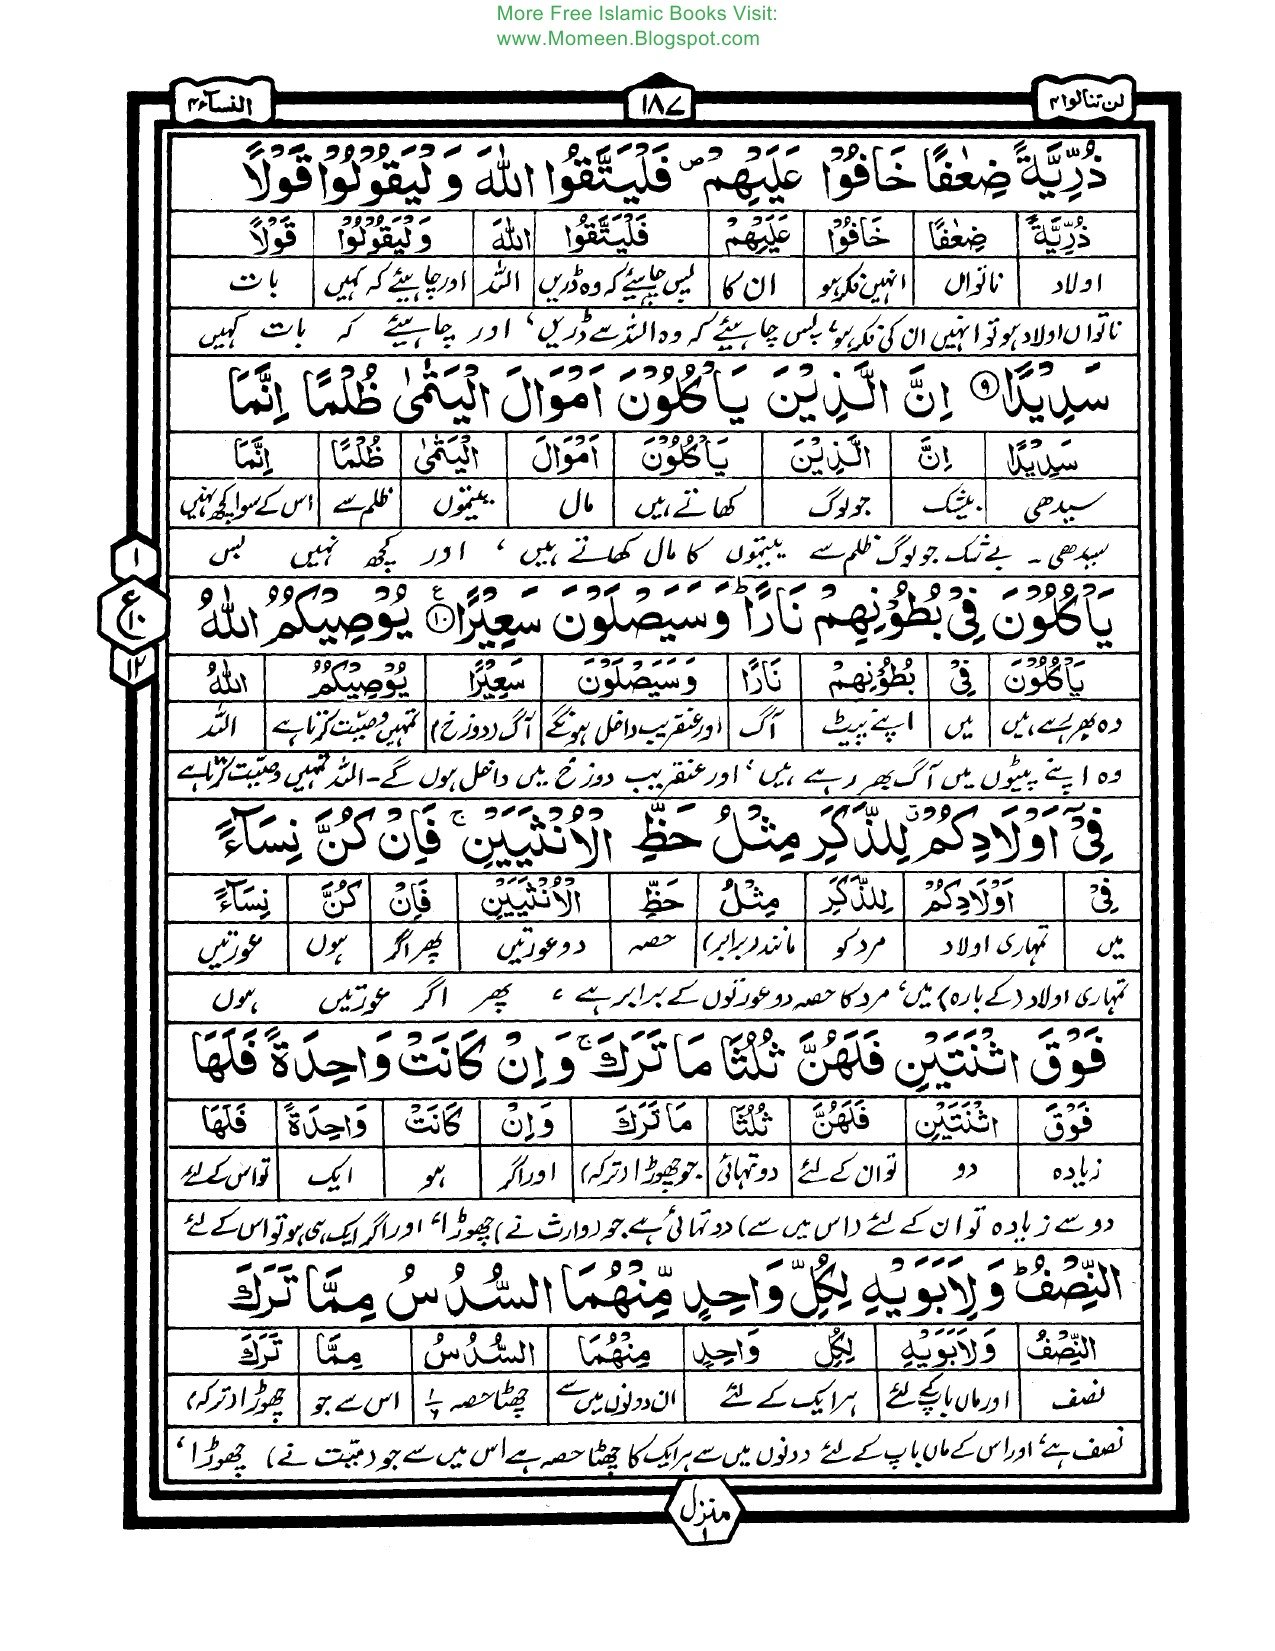 More Free Islamic Books Visit:
www.Momeen.Blogspot.com
لن تنالوا ۴ ۱۸۷ النسآء ۴
ذُرِّيَّةً ضِعٰفًا خَافُوْا عَلَيْهِمْ ۖ فَلْيَتَّقُوا اللّٰهَ وَ لْيَقُوْلُوْا قَوْلًا
ذُرِّيَّةً ضِعٰفًا خَافُوْا عَلَيْهِمْ فَلْيَتَّقُوا اللّٰهَ وَلْيَقُوْلُوْا قَوْلًا
اولاد ناتواں انہیں فکر ہو ان کا پس چاہیئے کہ وہ ڈریں اللہ اور چاہیئے کہ کہیں بات
ناتواں اولاد ہو تو انہیں ان کی فکر ہو، پس چاہیئے کہ وہ اللہ سے ڈریں، اور چاہیئے کہ بات کہیں
سَدِيْدًا ۹ اِنَّ الَّذِيْنَ يَاْكُلُوْنَ اَمْوَالَ الْيَتٰمٰى ظُلْمًا اِنَّمَا
سَدِيْدًا اِنَّ الَّذِيْنَ يَاْكُلُوْنَ اَمْوَالَ الْيَتٰمٰى ظُلْمًا اِنَّمَا
سیدھی بیشک جو لوگ کھاتے ہیں مال یتیموں ظلم سے اس کے سوا کچھ نہیں
سیدھی ۔ بے شک جو لوگ ظلم سے یتیموں کا مال کھاتے ہیں ، اور کچھ نہیں بس
۱
ع
۱۰
۱۲
يَاْكُلُوْنَ فِيْ بُطُوْنِهِمْ نَارًا ؕ وَسَيَصْلَوْنَ سَعِيْرًا ۱۰ ع يُوْصِيْكُمُ اللّٰهُ
يَاْكُلُوْنَ فِيْ بُطُوْنِهِمْ نَارًا وَسَيَصْلَوْنَ سَعِيْرًا يُوْصِيْكُمُ اللّٰهُ
وہ بھر رہے ہیں میں اپنے پیٹ آگ اور عنقریب داخل ہونگے آگ (دوزخ) تمہیں وصیّت کرتا ہے اللہ
وہ اپنے پیٹوں میں آگ بھر رہے ہیں، اور عنقریب دوزخ میں داخل ہوں گے۔ اللہ تمہیں وصیّت کرتا ہے
فِيْٓ اَوْلَادِكُمْ ۗ لِلذَّكَرِ مِثْلُ حَظِّ الْاُنْثَيَيْنِ ۚ فَاِنْ كُنَّ نِسَآءً
فِيْ اَوْلَادِكُمْ لِلذَّكَرِ مِثْلُ حَظِّ الْاُنْثَيَيْنِ فَاِنْ كُنَّ نِسَآءً
میں تمہاری اولاد مرد کو مانند (برابر) حصہ دو عورتیں پھر اگر ہوں عورتیں
تمہاری اولاد (کے بارہ) میں، مرد کا حصہ دو عورتوں کے برابر ہے ، پھر اگر عورتیں ہوں
فَوْقَ اثْنَتَيْنِ فَلَهُنَّ ثُلُثَا مَا تَرَكَ ۚ وَ اِنْ كَانَتْ وَاحِدَةً فَلَهَا
فَوْقَ اثْنَتَيْنِ فَلَهُنَّ ثُلُثَا مَا تَرَكَ وَ اِنْ كَانَتْ وَاحِدَةً فَلَهَا
زیادہ دو تو ان کے لئے دو تہائی جو چھوڑا (ترکہ) اور اگر ہو ایک تو اس کے لئے
دو سے زیادہ تو ان کے لئے (اس میں سے) دو تہائی ہے جو (وارث نے) چھوڑا، اور اگر ایک ہی ہو تو اس کے لئے
النِّصْفُ ؕ وَ لِاَبَوَيْهِ لِكُلِّ وَاحِدٍ مِّنْهُمَا السُّدُسُ مِمَّا تَرَكَ
النِّصْفُ وَلِاَبَوَيْهِ لِكُلِّ وَاحِدٍ مِنْهُمَا السُّدُسُ مِمَّا تَرَكَ
نصف اور ماں باپ کے لئے ہر ایک کے لئے ان دونوں میں سے چھٹا حصہ ۱/۶ اس سے جو چھوڑا (ترکہ)
نصف ہے، اور اس کے ماں باپ کے لئے دونوں میں سے ہر ایک کا چھٹا حصہ ہے اس میں سے جو (میّت نے) چھوڑا ،
منزل ۱